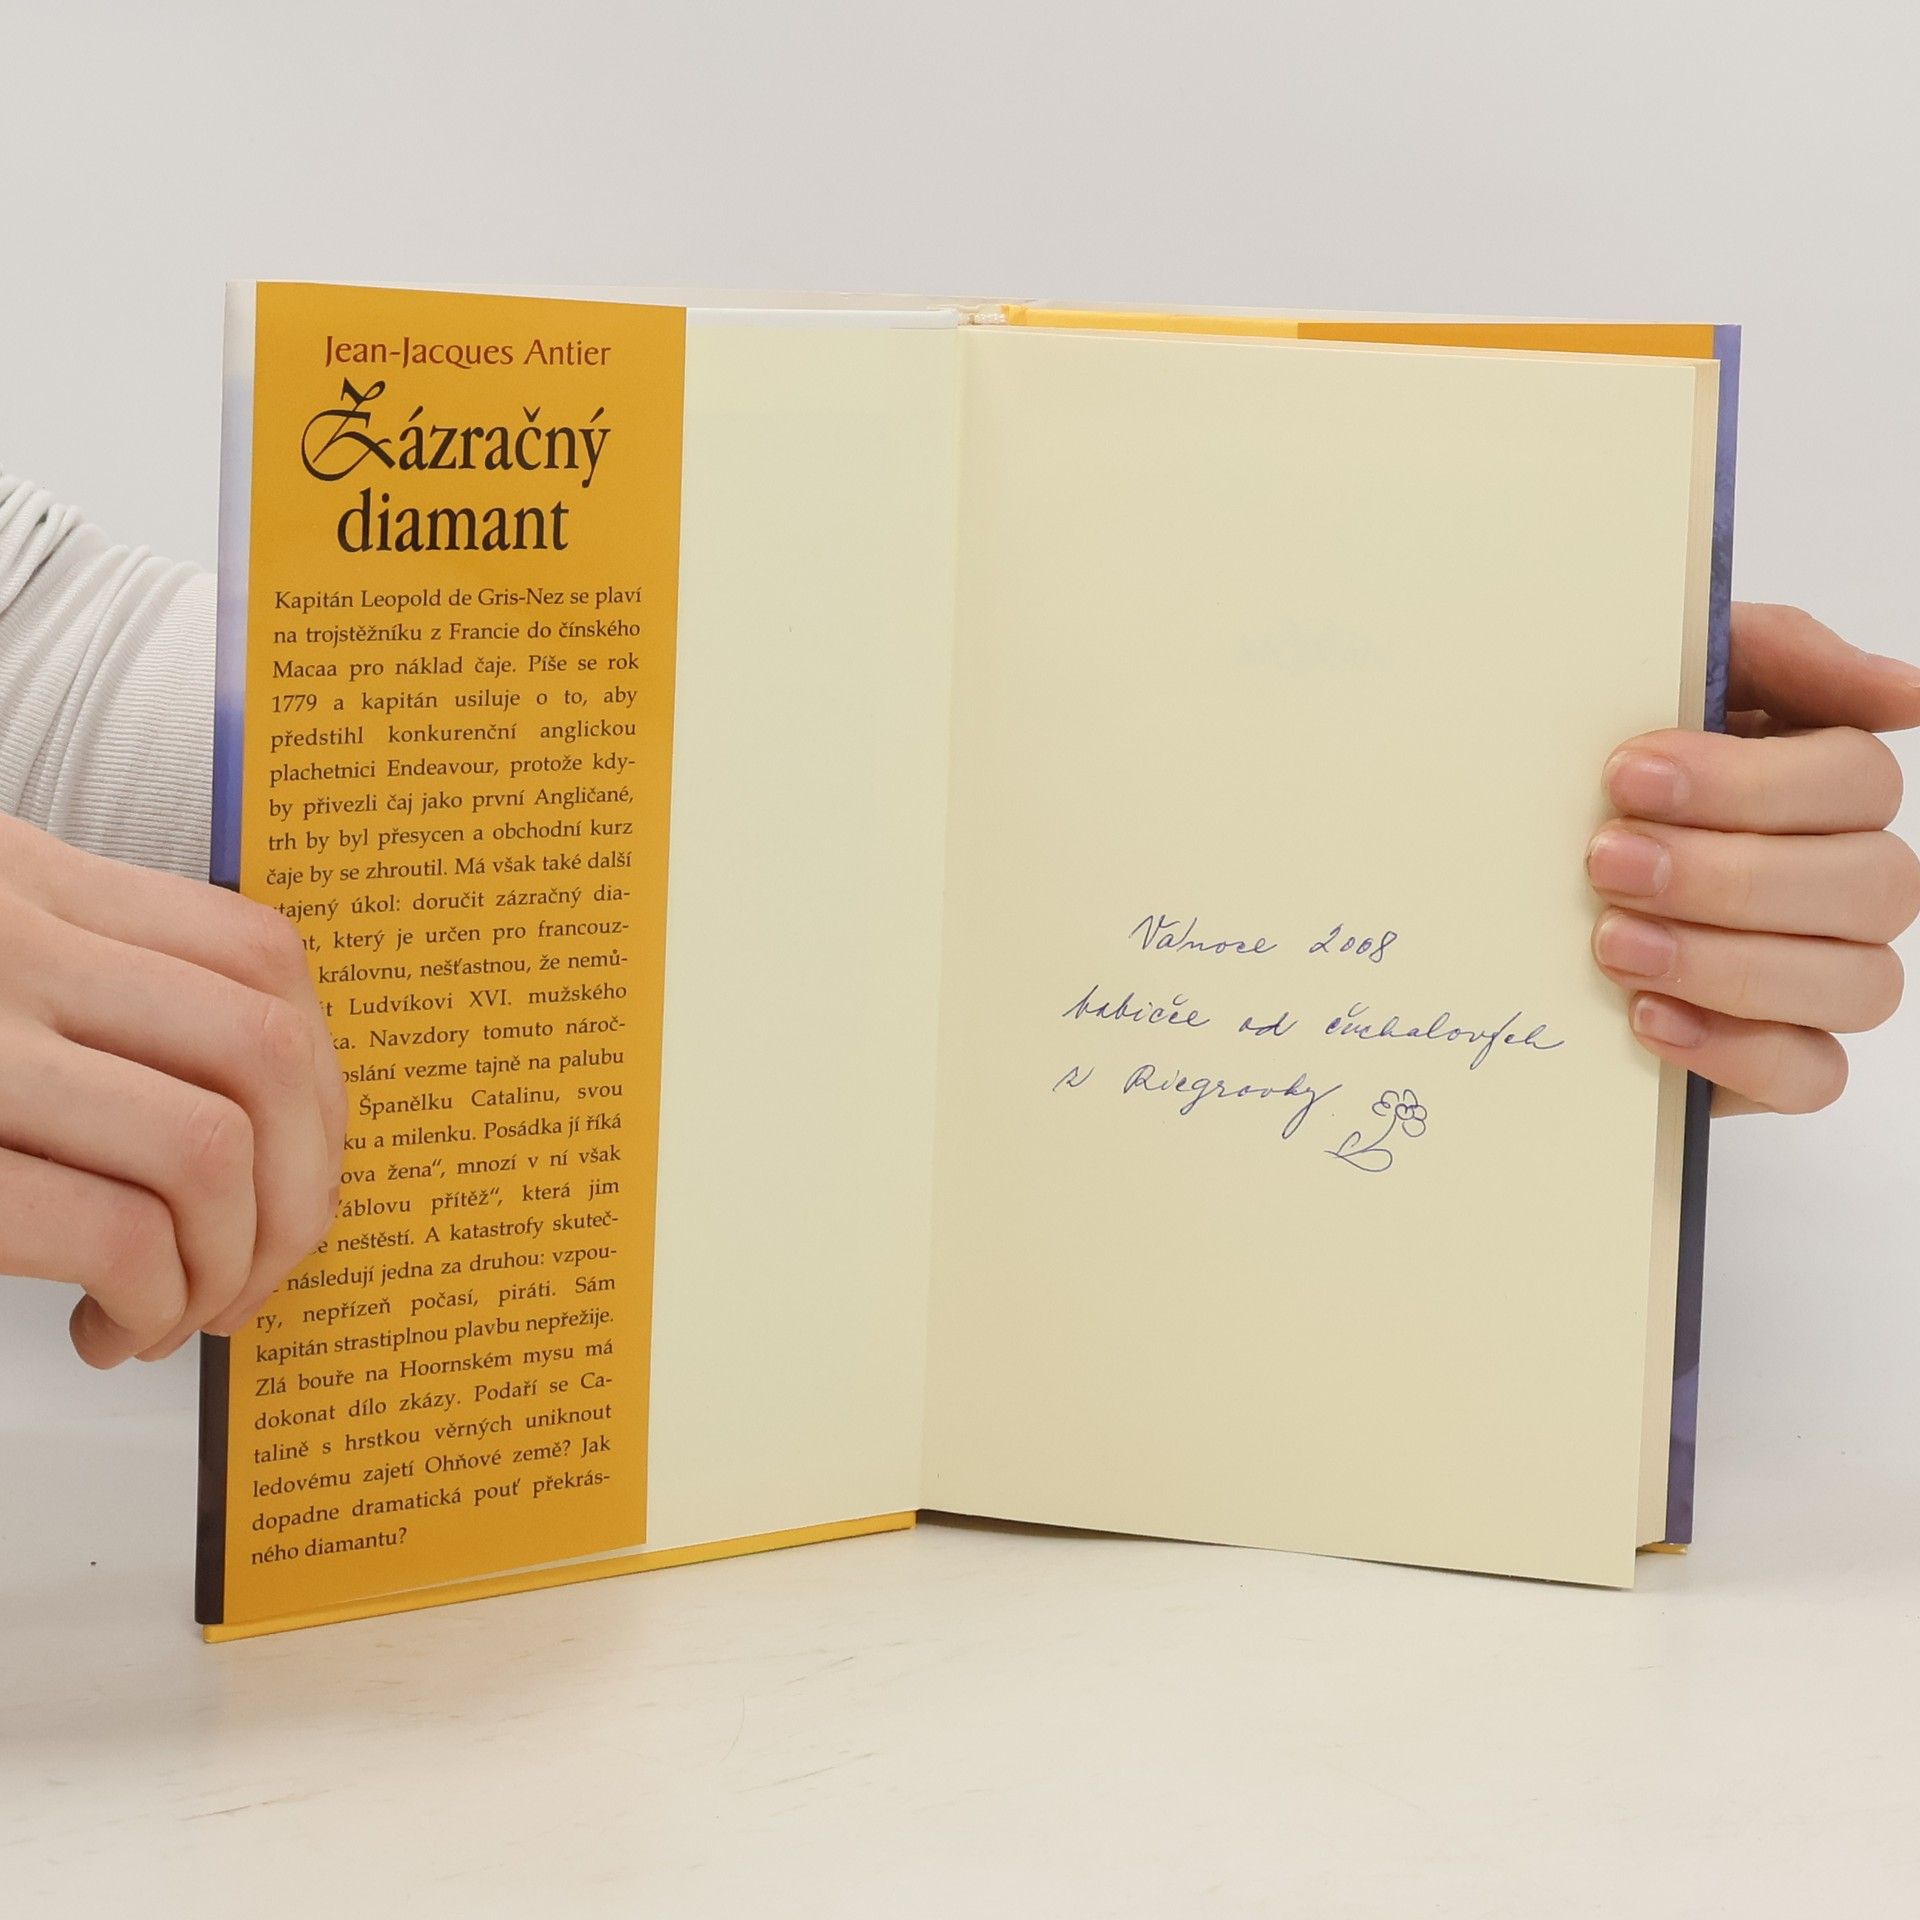 Jean-Jacques Antier
Zázračný
diamant
Kapitán Leopold de Gris-Nez se plaví
na trojstěžníku z Francie do čínského
Macaa pro náklad čaje. Píše se rok
1779 a kapitán usiluje o to, aby
předstihl konkurenční anglickou
plachetnici Endeavour, protože kdy-
by přivezli čaj jako první Angličané,
trh by byl přesycen a obchodní kurz
čaje by se zhroutil. Má však také další
tajený úkol: doručit zázračný dia-
nt, který je určen pro francouz-
královnu, nešťastnou, že nemů-
it Ludvíkovi XVI. mužského
ka. Navzdory tomuto nároč-
oslání vezme tajně na palubu
Španělku Catalinu, svou
ku a milenku. Posádka jí říká
ova žena“, mnozí v ní však
áblovu přítěž“, která jim
e neštěstí. A katastrofy skuteč-
následují jedna za druhou: vzpou-
ry, nepřízeň počasí, piráti. Sám
kapitán strastiplnou plavbu nepřežije.
Zlá bouře na Hoornském mysu má
dokonat dílo zkázy. Podaří se Ca-
talině s hrstkou věrných uniknout
ledovému zajetí Ohňové země? Jak
dopadne dramatická pouť překrás-
ného diamantu?
Vánoce 2008
babičce od čuchalových
z Riegrovky